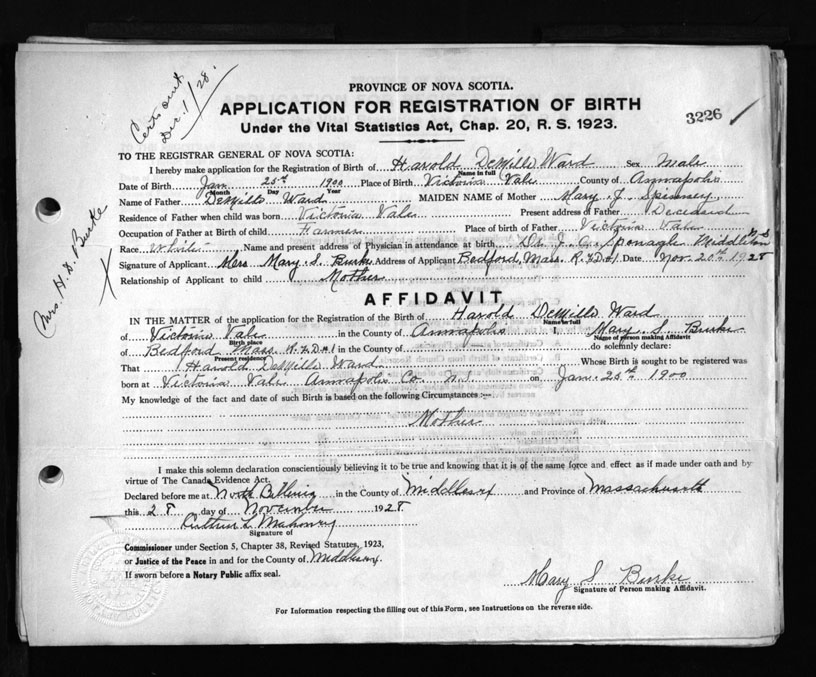 Certs out
Dec. 1/28.
PROVINCE OF NOVA SCOTIA.
APPLICATION FOR REGISTRATION OF BIRTH
Under the Vital Statistics Act, Chap. 20, R. S. 1923.
3226
TO THE REGISTRAR GENERAL OF NOVA SCOTIA:
I hereby make application for the Registration of Birth of Harold DeMille Ward Sex Male
Name in full
Date of Birth Jan 25th 1900 Place of Birth Victoria Vale County of Annapolis
Month Day Year
Name of Father DeMille Ward MAIDEN NAME of Mother Mary J. Spinney
Residence of Father when child was born Victoria Vale Present address of Father Deceased
Occupation of Father at Birth of child Farmer Place of birth of Father Victoria Vale
Race White Name and present address of Physician in attendance at birth Sponagle Middleton N.S
Signature of Applicant Mrs Mary S. Burke Address of Applicant Bedford, Mass. R.F.D #1 Date Nov. 20th 1928
Relationship of Applicant to child Mother
Mrs. H. D. Burke
AFFIDAVIT
IN THE MATTER of the application for the Registration of the Birth of Harold DeMille Ward
Name in full
of Victoria Vale in the County of Annapolis I, Mary S. Burke
Birth place Name of person making Affidavit
of Bedford Mass R.F.D #1 do solemnly declare:
Present residence
That Harold DeMille Ward Whose Birth is sought to be registered was
born at Victoria Vale Annapolis Co. N.S. on Jan. 25th 1900
My knowledge of the fact and date of such Birth is based on the following Circumstances:—
Mother
I make this solemn declaration conscientiously believing it to be true and knowing that it is of the same force and effect as if made under oath and by
virtue of The Canada Evidence Act.
Declared before me at North Billerica in the County of Middlesex and Province of Massachusetts
this 28 day of November 1928
Arthur L. Mahoney
Signature of
Commissioner under Section 5, Chapter 38, Revised Statutes, 1923,
or Justice of the Peace in and for the County of Middlesex.
If sworn before a Notary Public affix seal.
Mary S Burke
Signature of Person making Affidavit.
For Information respecting the filling out of this Form, see Instructions on the reverse side.